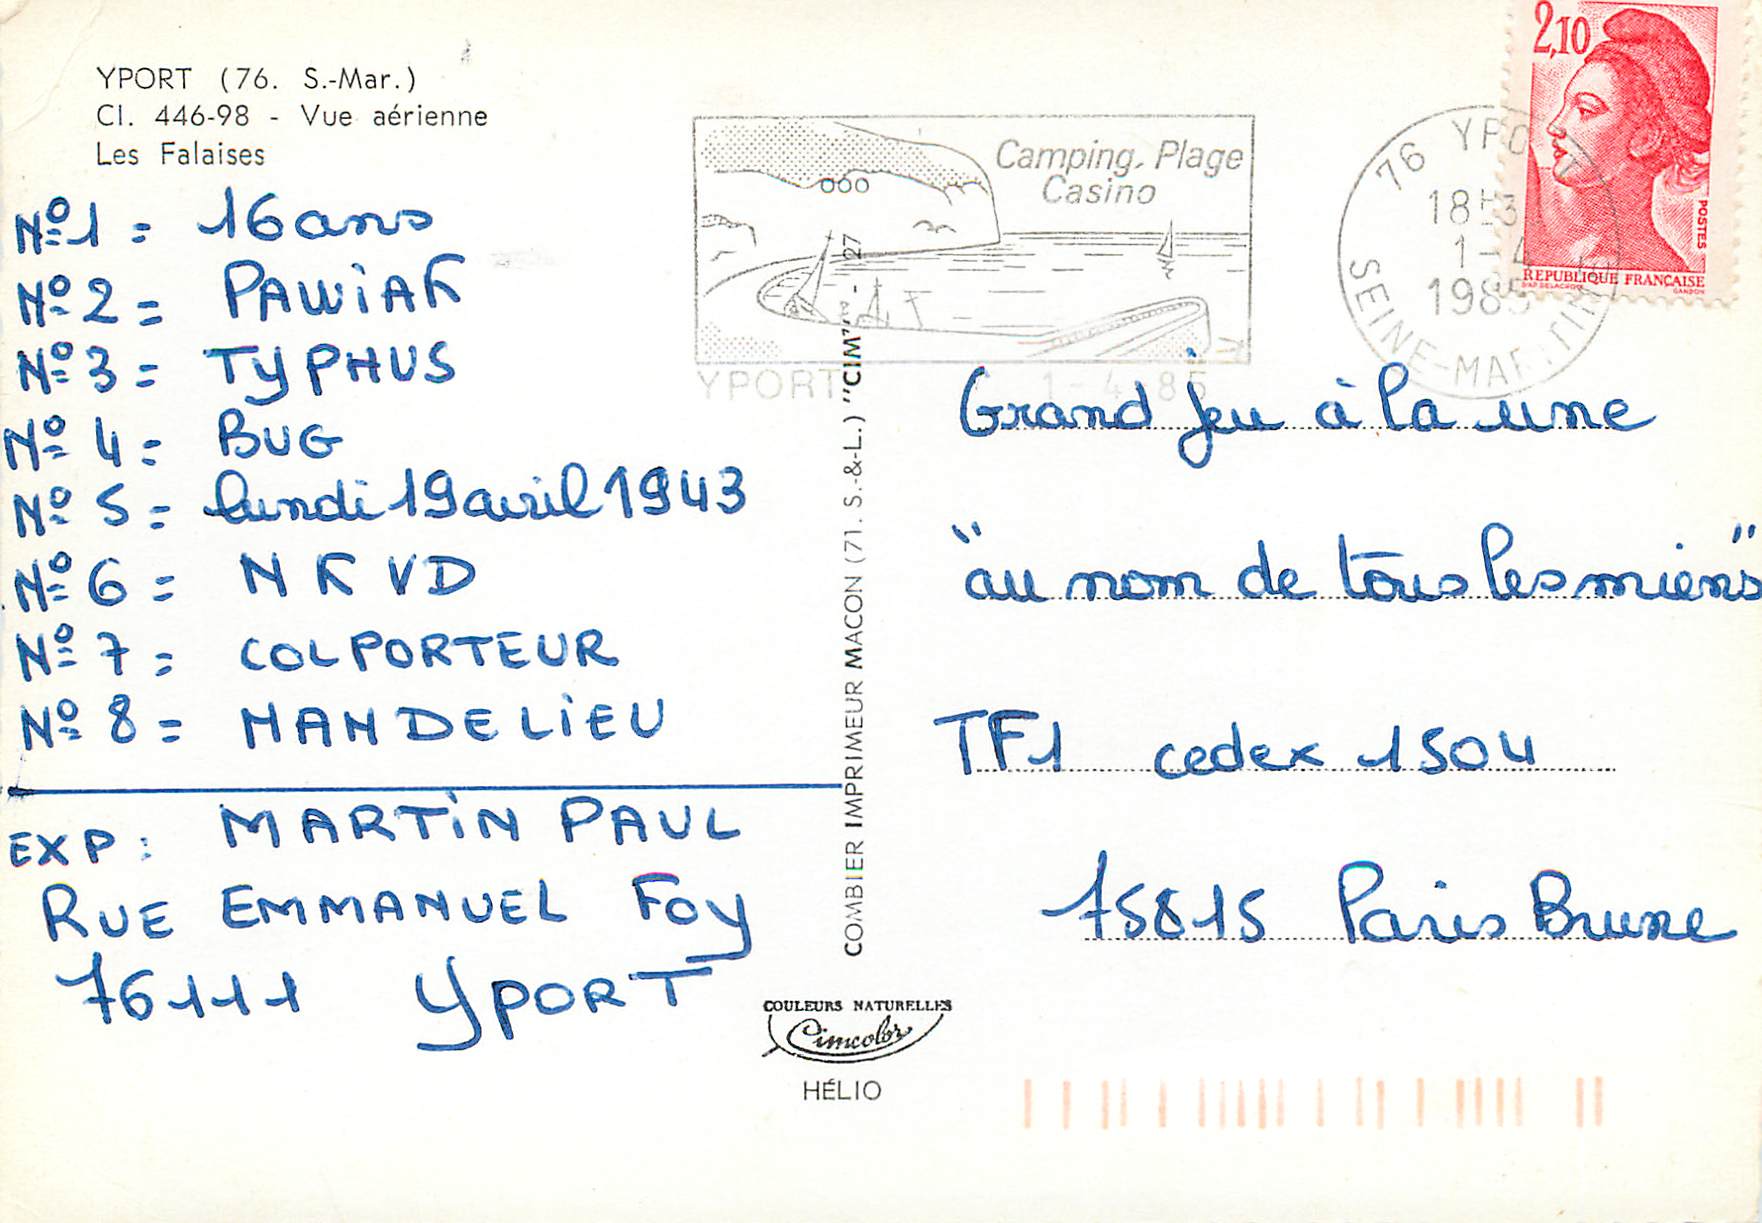 YPORT (76. S.-Mar.)
CI. 446-98 - Vue aérienne
Les Falaises
N° 1 = 16 ans
N° 2 = PAWIAK
N° 3 = TYPHUS
N° 4 = BUG
N° 5 = lundi 19 avril 1943
N° 6 = NKVD
N° 7 = COLPORTEUR
N° 8 = MANDELIEU
EXP : MARTIN PAUL
RUE EMMANUEL FOY
76111 YPORT
COMBIER IMPRIMEUR MACON (71. S.-&-L.) "CIM"
COULEURS NATURELLES
Cimcolor
HÉLIO
Camping. Plage
Casino
YPORT 1-4-85
76 YPORT
1-4
1985
SEINE-MARITIME
2,10
POSTES
REPUBLIQUE FRANÇAISE
D'AP. DELACROIX GANDON
Grand jeu à la une
"au nom de tous les miens"
TF1 cedex 1504
75815 Paris Brune